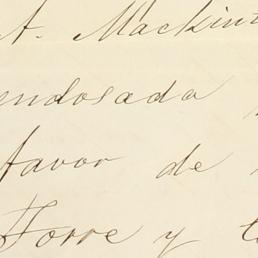 A. Mackint
endosada
favor de
Torre y